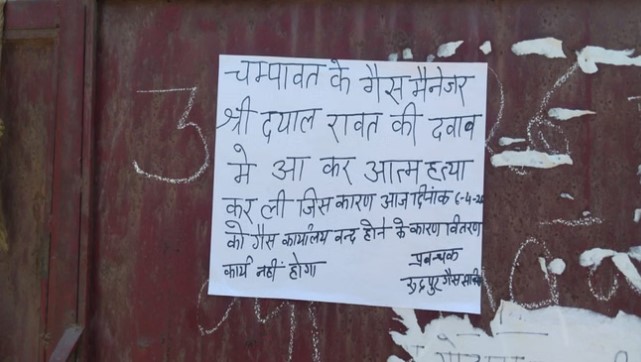 चम्पावत के गैस मैनेजर
श्री दयाल रावत की दवाव
मे आ कर आत्म हत्या
कर ली जिस कारण आज दिनांक 6-4-20
को गैस कार्यालय वन्द होने के कारण वितरण
कार्य नहीं होगा
प्रवन्धक
रुद्रपुर गैस
3